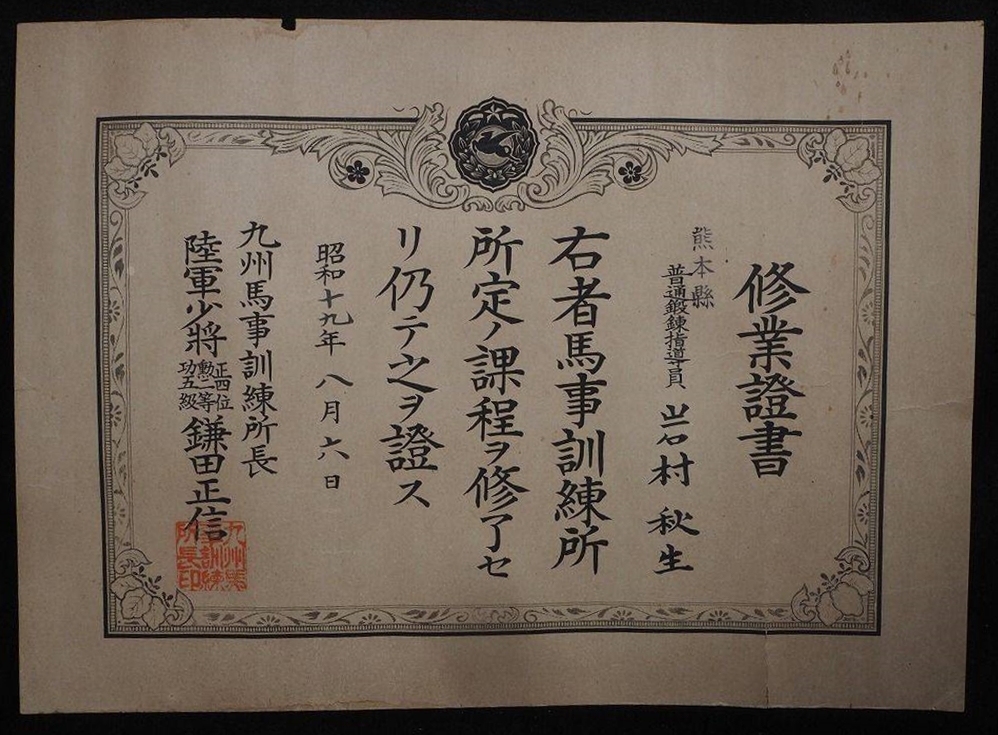 修業證書
熊本縣
普通鍛錬指導員 岩村秋生
右者馬事訓練所
所定ノ課程ヲ修了セ
リ仍テ之ヲ證ス
昭和十九年八月六日
九州馬事訓練所長
陸軍少將 正四位 勲二等 功五級 鎌田正信
九州馬事訓練所長印